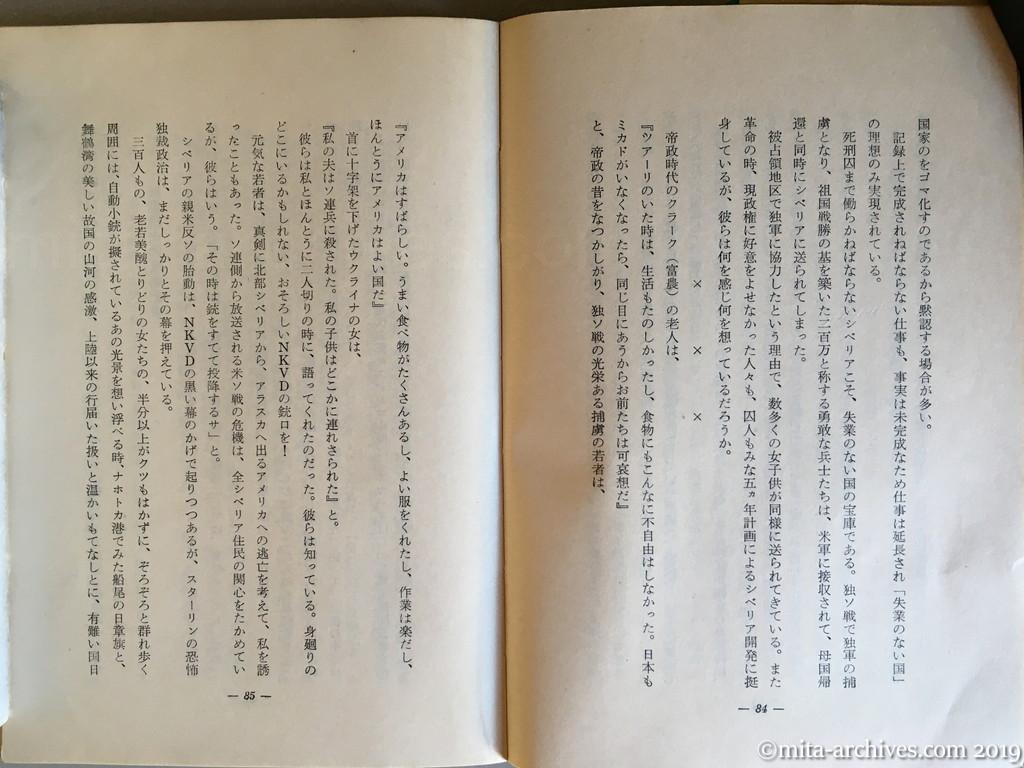 国家のをゴマ化すのであるから黙認する場合が多い。
記録上で完成されねばならない仕事も、事実は未完成なため仕事は延長され「失業のない国」
の理想のみ実現されている。
死刑囚まで働らかねばならないシベリアこそ、失業のない国の宝庫である。独ソ戦で独軍の捕
虜となり、祖国戦勝の基を築いた二百万と称する勇敢な兵士たちは、米軍に接収されて、母国帰
還と同時にシベリアに送られてしまった。
被占領地区で独軍に協力したという理由で、数多くの女子供が同様に送られてきている。また
革命の時、現政権に好意をよせなかった人々も、囚人もみな五ヵ年計画によるシベリア開発に挺
身しているが、彼らは何を感じ何を想っているだろうか。
× × ×
帝政時代のクラーク（富農）の老人は、
『ツアーリのいた時は、生活もたのしかったし、食物にもこんなに不自由はしなかった。日本も
ミカドがいなくなったら、同じ目にあうからお前たちは可哀想だ』
と、帝政の昔をなつかしがり、独ソ戦の光栄ある捕虜の若者は、
— 84 —
『アメリカはすばらしい。うまい食べ物がたくさんあるし、よい服をくれたし、作業は楽だし、
ほんとうにアメリカはよい国だ』
首に十字架を下げたウクライナの女は、
『私の夫はソ連兵に殺された。私の子供はどこかに連れさられた』と。
彼らは私とほんとうに二人切りの時に、語ってくれたのだった。彼らは知っている。身廻りの
どこにいるかもしれない、おそろしいNKVDの銃口を！
元気な若者は、真剣に北部シベリアから、アラスカへ出るアメリカへの逃亡を考えて、私を誘
ったこともあった。ソ連側から放送される米ソ戦の危機は、全シベリア住民の関心をたかめてい
るが、彼らはいう。「その時は銃をすてて投降するサ」と。
シベリアの親米反ソの胎動は、NKVDの黒い幕のかげで起りつつあるが、スターリンの恐怖
独裁政治は、まだしっかりとその幕を押えている。
三百人もの、老若美醜とりどりの女たちの、半分以上がクツもはかずに、ぞろぞろと群れ歩く
周囲には、自動小銃が擬されているあの光景を想い浮べる時、ナホトカ港でみた船尾の日章旗と、
舞鶴湾の美しい故国の山河の感激、上陸以来の行届いた扱いと温かいもてなしとに、有難い国日
— 85 —
©mita-archives.com 2019